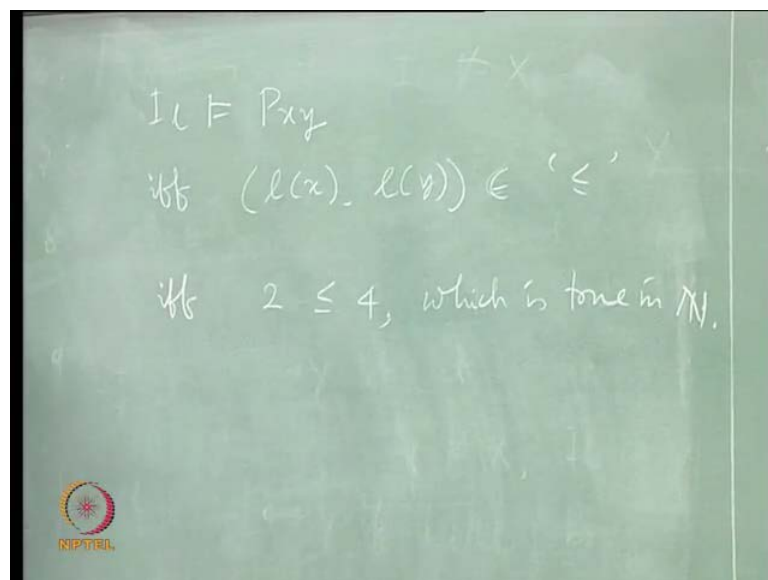 I_l ⊨ Pxy
iff (l(x), l(y)) ∈ '≤'
iff 2 ≤ 4, which is true in ℕ.
NPTEL